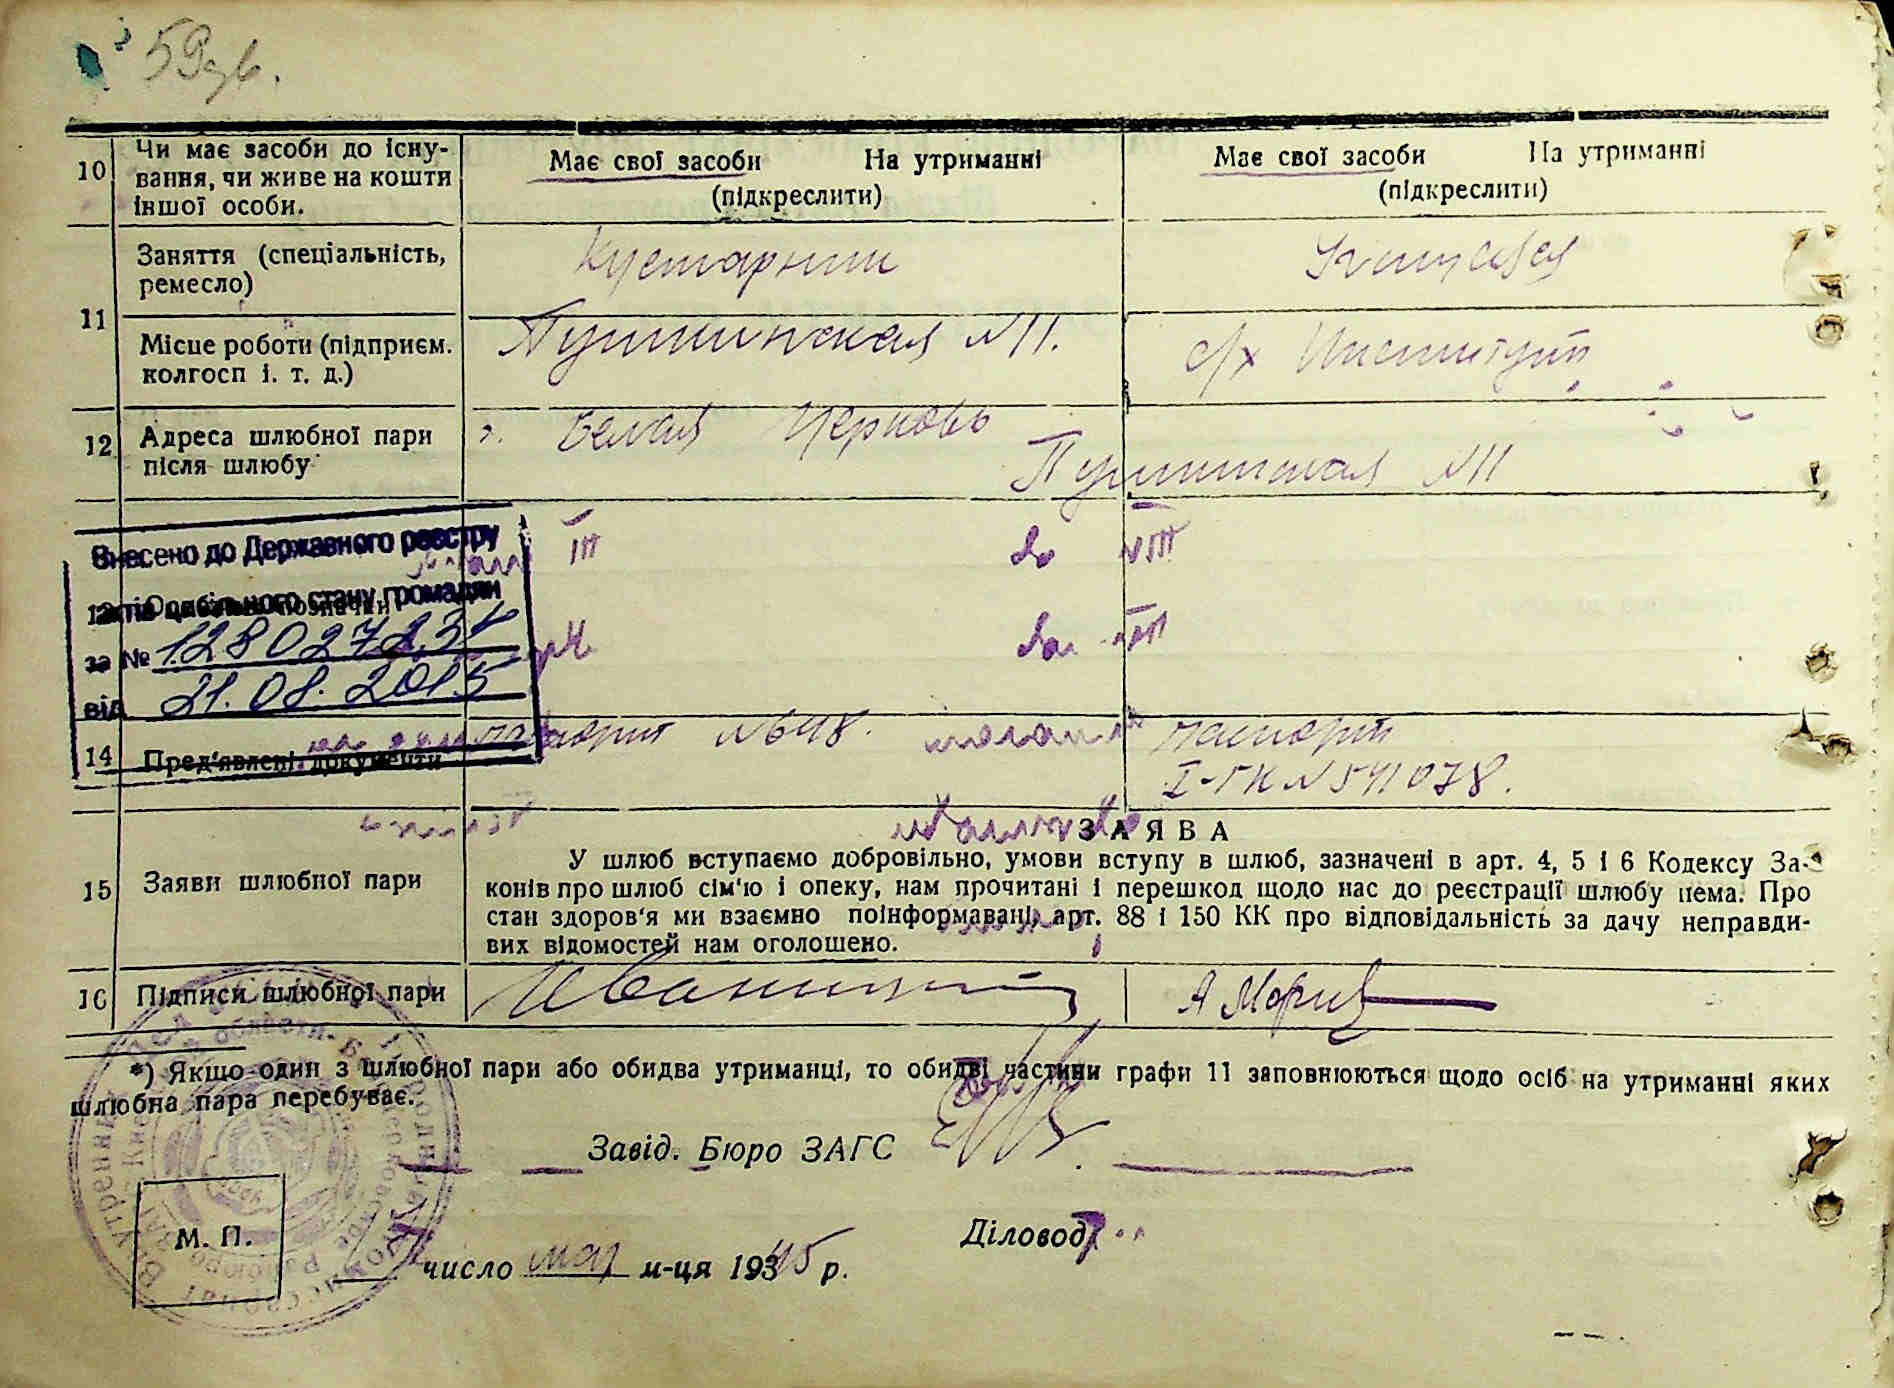 59зв.
10 Чи має засоби до існу-
вання, чи живе на кошти
іншої особи.
Має свої засоби На утриманні
(підкреслити)
Має свої засоби На утриманні
(підкреслити)
11
Заняття (спеціальність,
ремесло)
Кустарник
Місце роботи (підприєм.
колгосп і. т. д.)
Пушкинская №11.
с/х Институт
12 Адреса шлюбної пари
після шлюбу
г. Белая Церковь
Пушкинская №11
Внесено до Державного реєстру
актів цивільного стану громадян
за №
від 21.08.2015
III до VIII
до
14 Пред'явлені документи
паспорт №648.
паспорт
I-ГК №541078.
15 Заяви шлюбної пари
ЗАЯВА
У шлюб вступаємо добровільно, умови вступу в шлюб, зазначені в арт. 4, 5 і 6 Кодексу За-
конів про шлюб сім'ю і опеку, нам прочитані і перешкод щодо нас до реєстрації шлюбу нема. Про
стан здоров'я ми взаємно поінформавані, арт. 88 і 150 КК про відповідальність за дачу неправди-
вих відомостей нам оголошено.
16 Підписи шлюбної пари
*) Якщо один з шлюбної пари або обидва утриманці, то обидві частини графи 11 заповнюються щодо осіб на утриманні яких
шлюбна пара перебуває.
Завід. Бюро ЗАГС
М. П.
Діловод
число мая м-ця 1945 р.